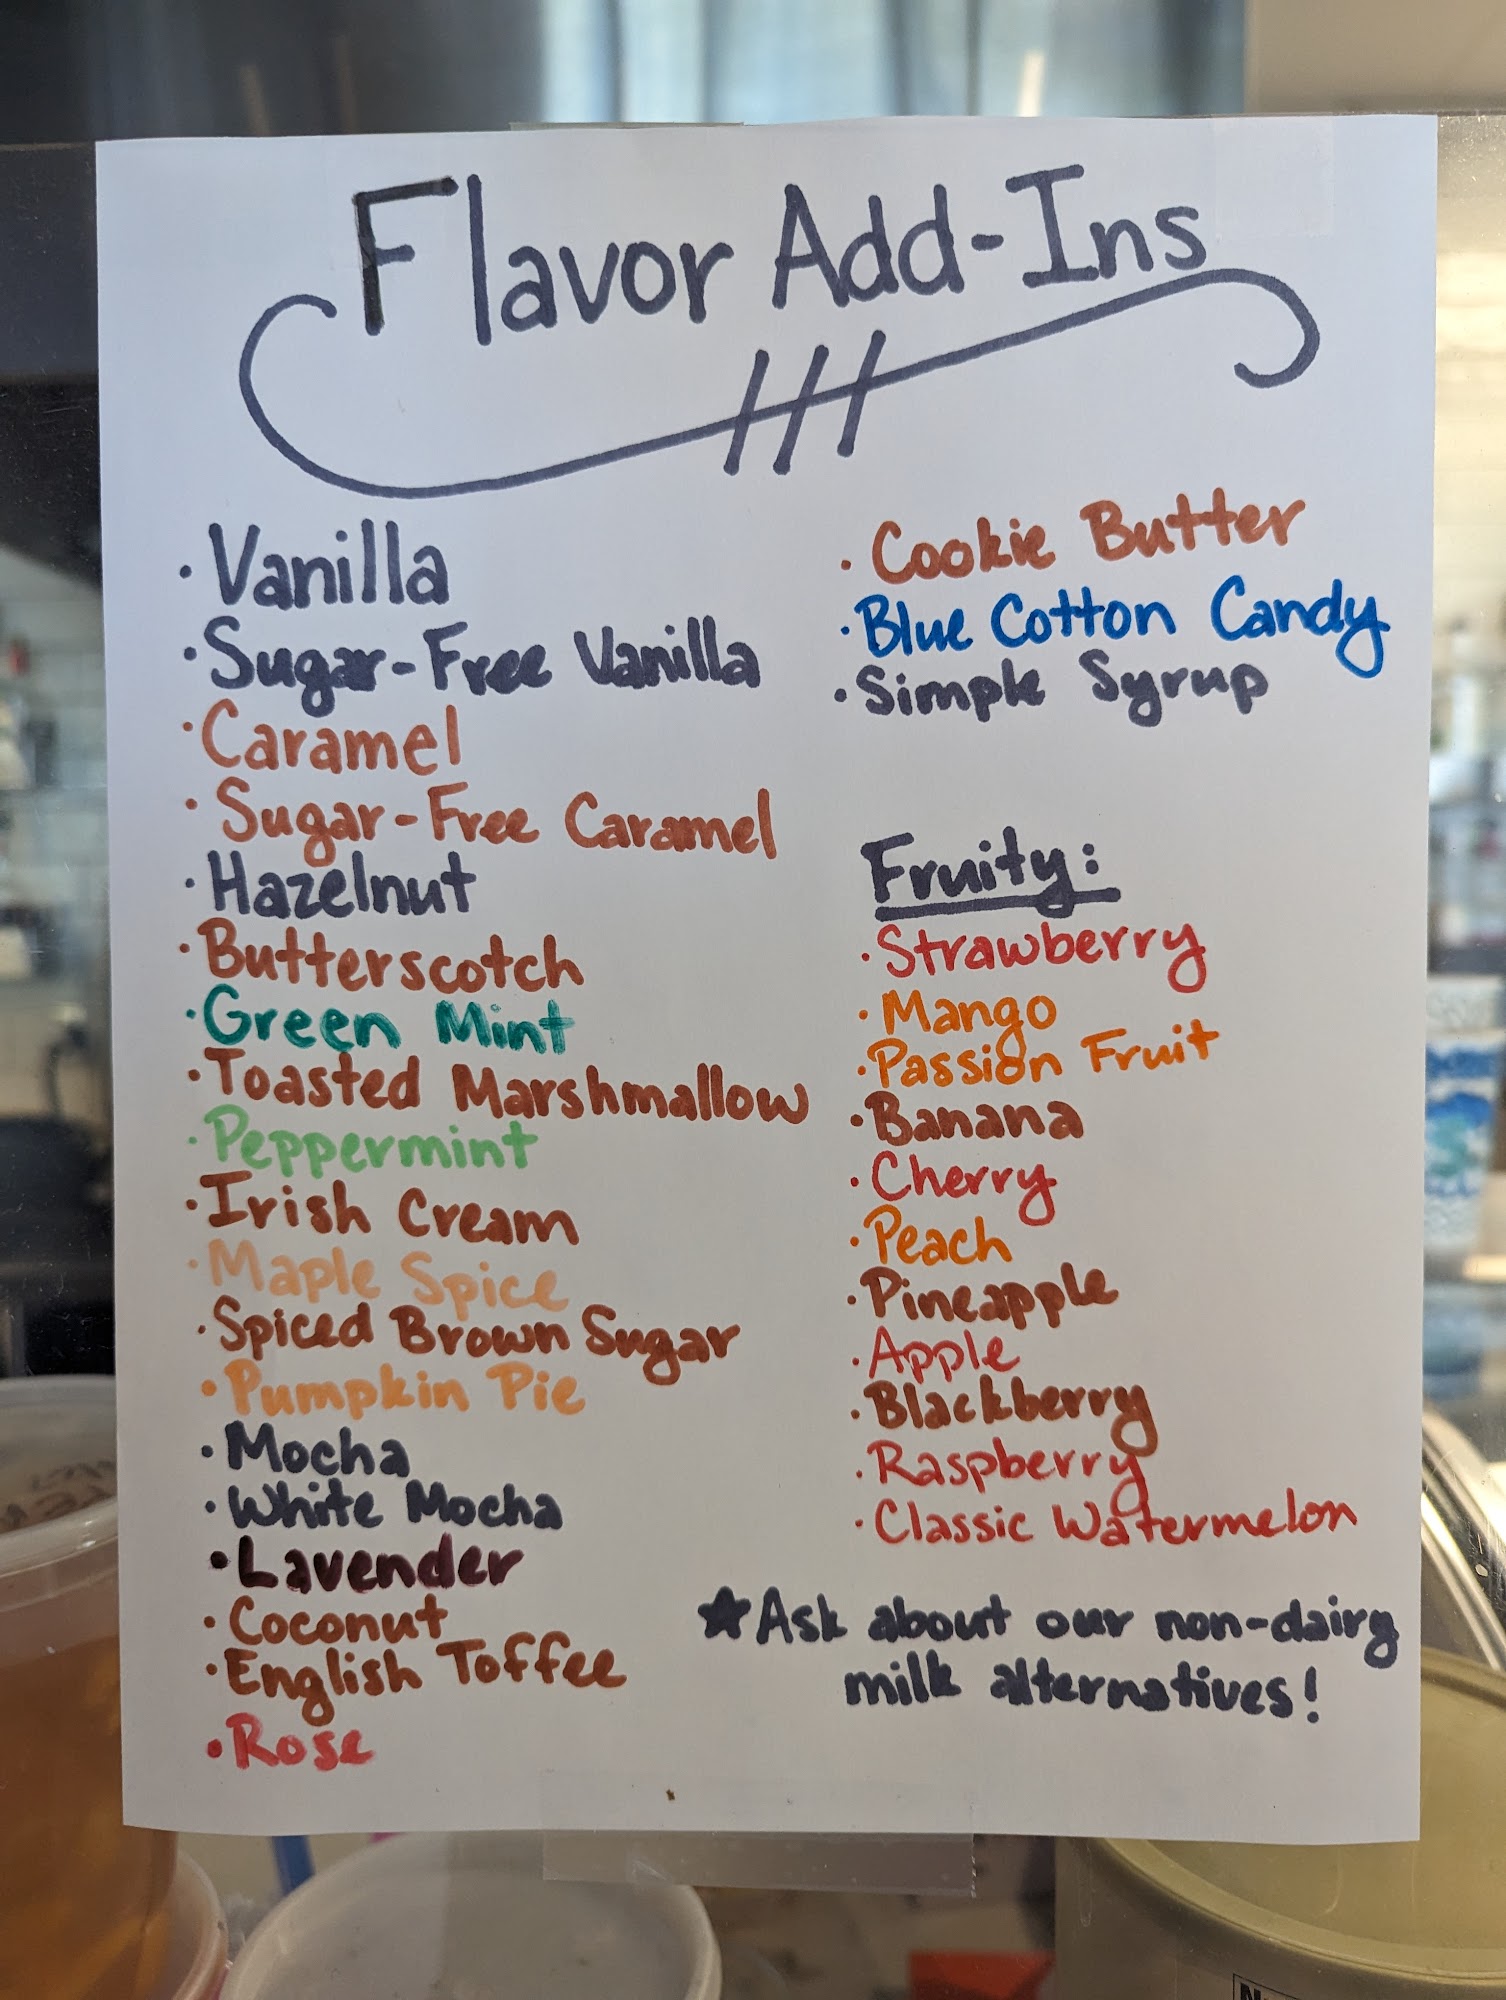 Flavor Add-Ins
· Vanilla
· Sugar-Free Vanilla
· Caramel
· Sugar-Free Caramel
· Hazelnut
· Butterscotch
· Green Mint
· Toasted Marshmallow
· Peppermint
· Irish Cream
· Maple Spice
· Spiced Brown Sugar
· Pumpkin Pie
· Mocha
· White Mocha
· Lavender
· Coconut
· English Toffee
· Rose
· Cookie Butter
· Blue Cotton Candy
· Simple Syrup
Fruity:
· Strawberry
· Mango
· Passion Fruit
· Banana
· Cherry
· Peach
· Pineapple
· Apple
· Blackberry
· Raspberry
· Classic Watermelon
★Ask about our non-dairy
milk alternatives!